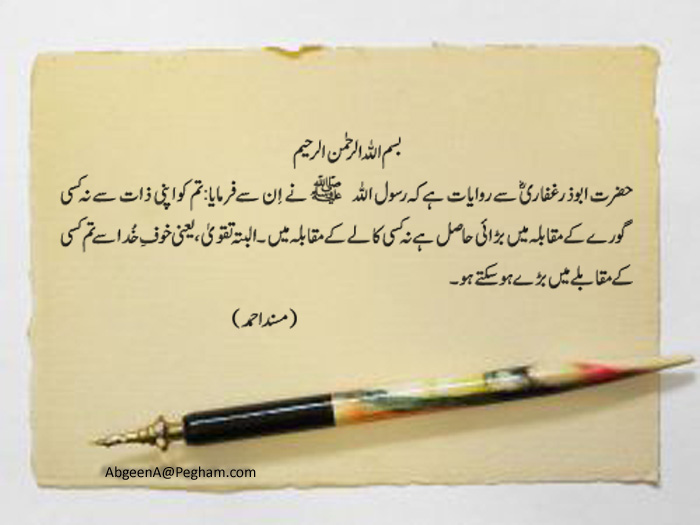 بسم اللہ الرحمٰن الرحیم
حضرت ابوذر غفاریؓ سے روایات ہے کہ رسول اللہ ﷺ نے اِن سے فرمایا: تم کو اپنی ذات سے نہ کسی
گورے کے مقابلہ میں بڑائی حاصل ہے نہ کسی کالے کے مقابلہ میں۔ البتہ تقویٰ، یعنی خوفِ خُدا سے تم کسی
کے مقابلے میں بڑے ہو سکتے ہو۔
(مسند احمد)
AbgeenA@Pegham.com